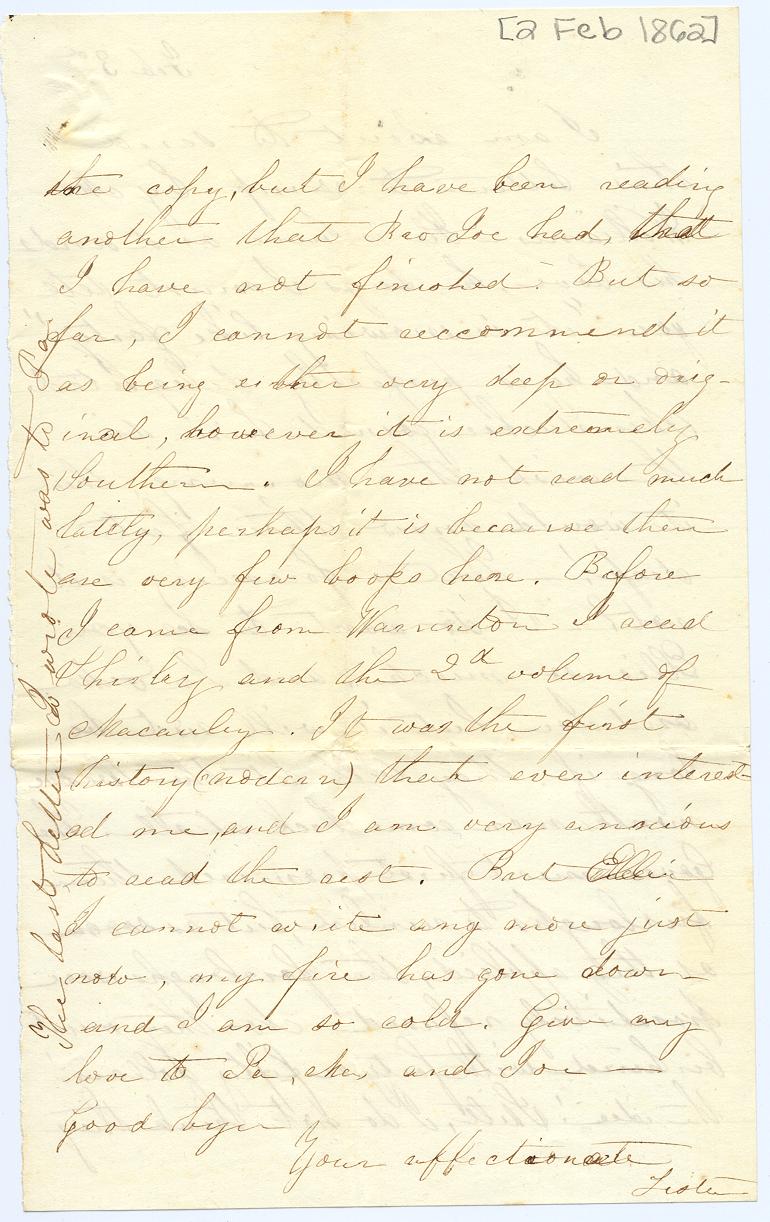 [2 Feb 1862]
the copy, but I have been reading
another that Bro Joe had, that
I have not finished. But so
far, I cannot reccommend it
as being either very deep or orig-
inal, however it is extremely
Southern. I have not read much
lately, perhaps it is because there
are very few books here. Before
I came from Warrinton I read
Shirley and the 2d volume of
Macauley. It was the first
history (modern) that ever interest-
ed me, and I am very anxious
to read the rest. But Ellie
I cannot write any more just
now, my fire has gone down
and I am so cold. Give my
love to Pa, Ma, and Joe —
Good bye
Your affectionate
Sister
The last letter I wrote was to Pa.